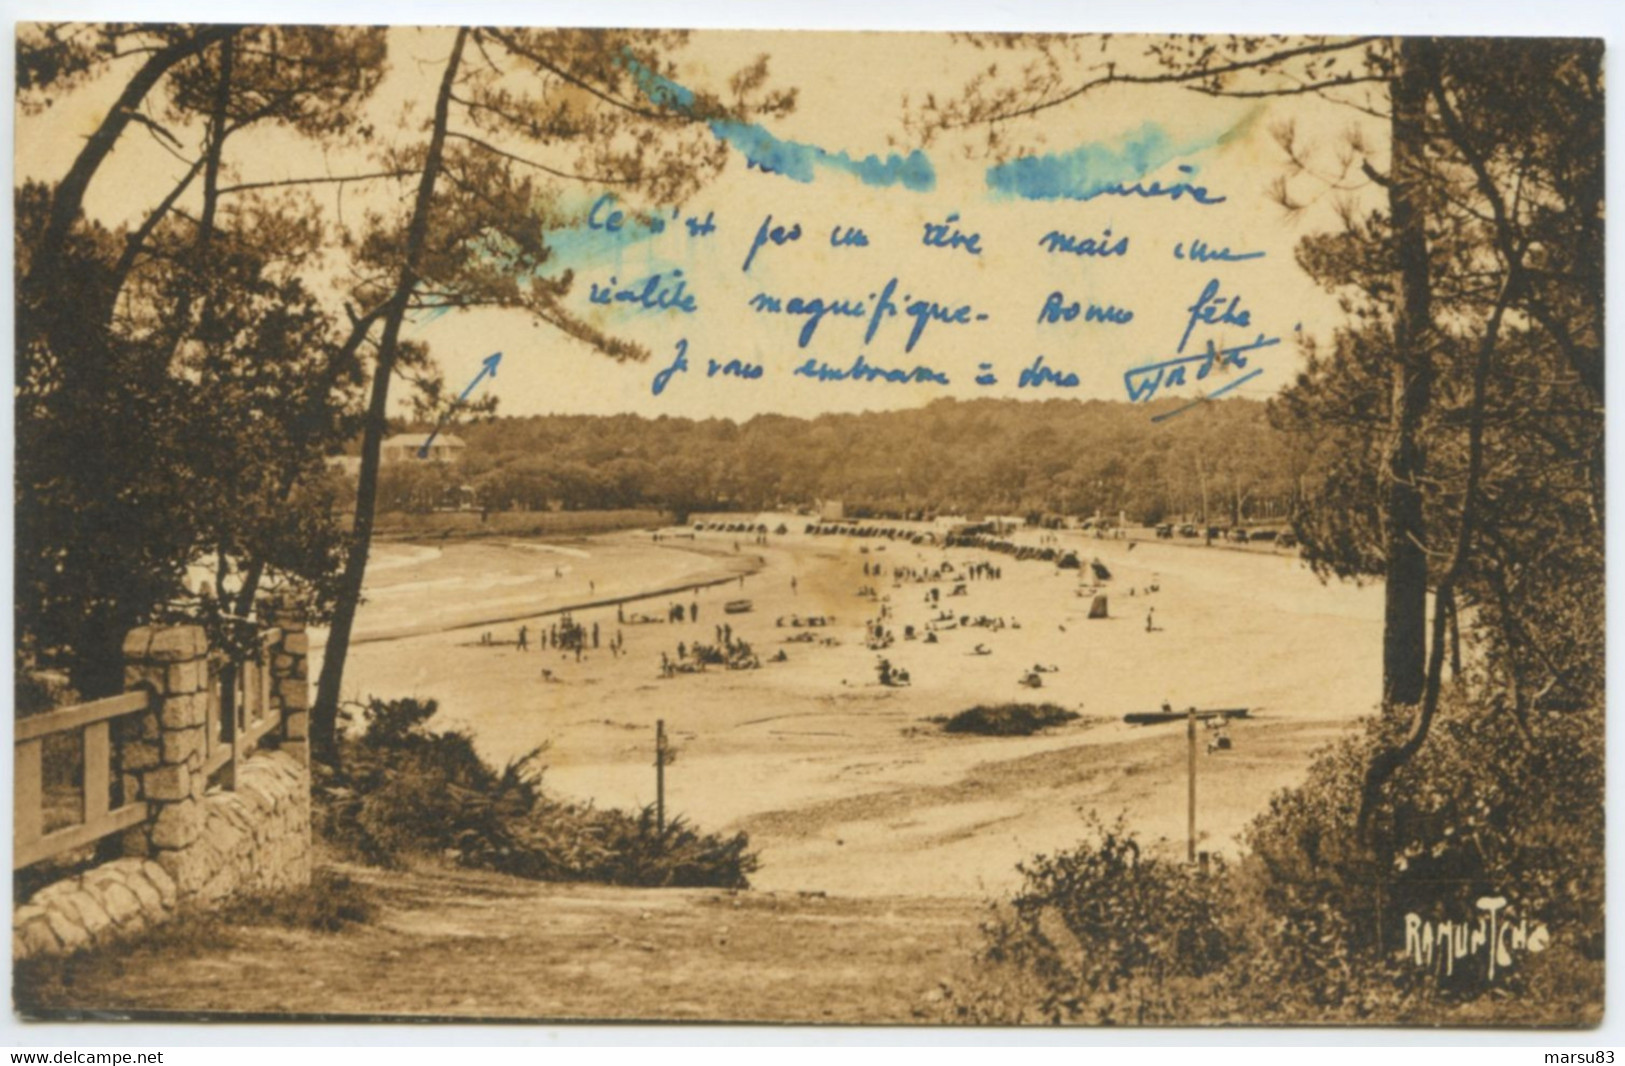 Ce n'est pas un rêve mais une
réalité magnifique - Bonne fête,
Je vous embrasse à tous
RAMUNTCHO
www.delcampe.net
marsu83